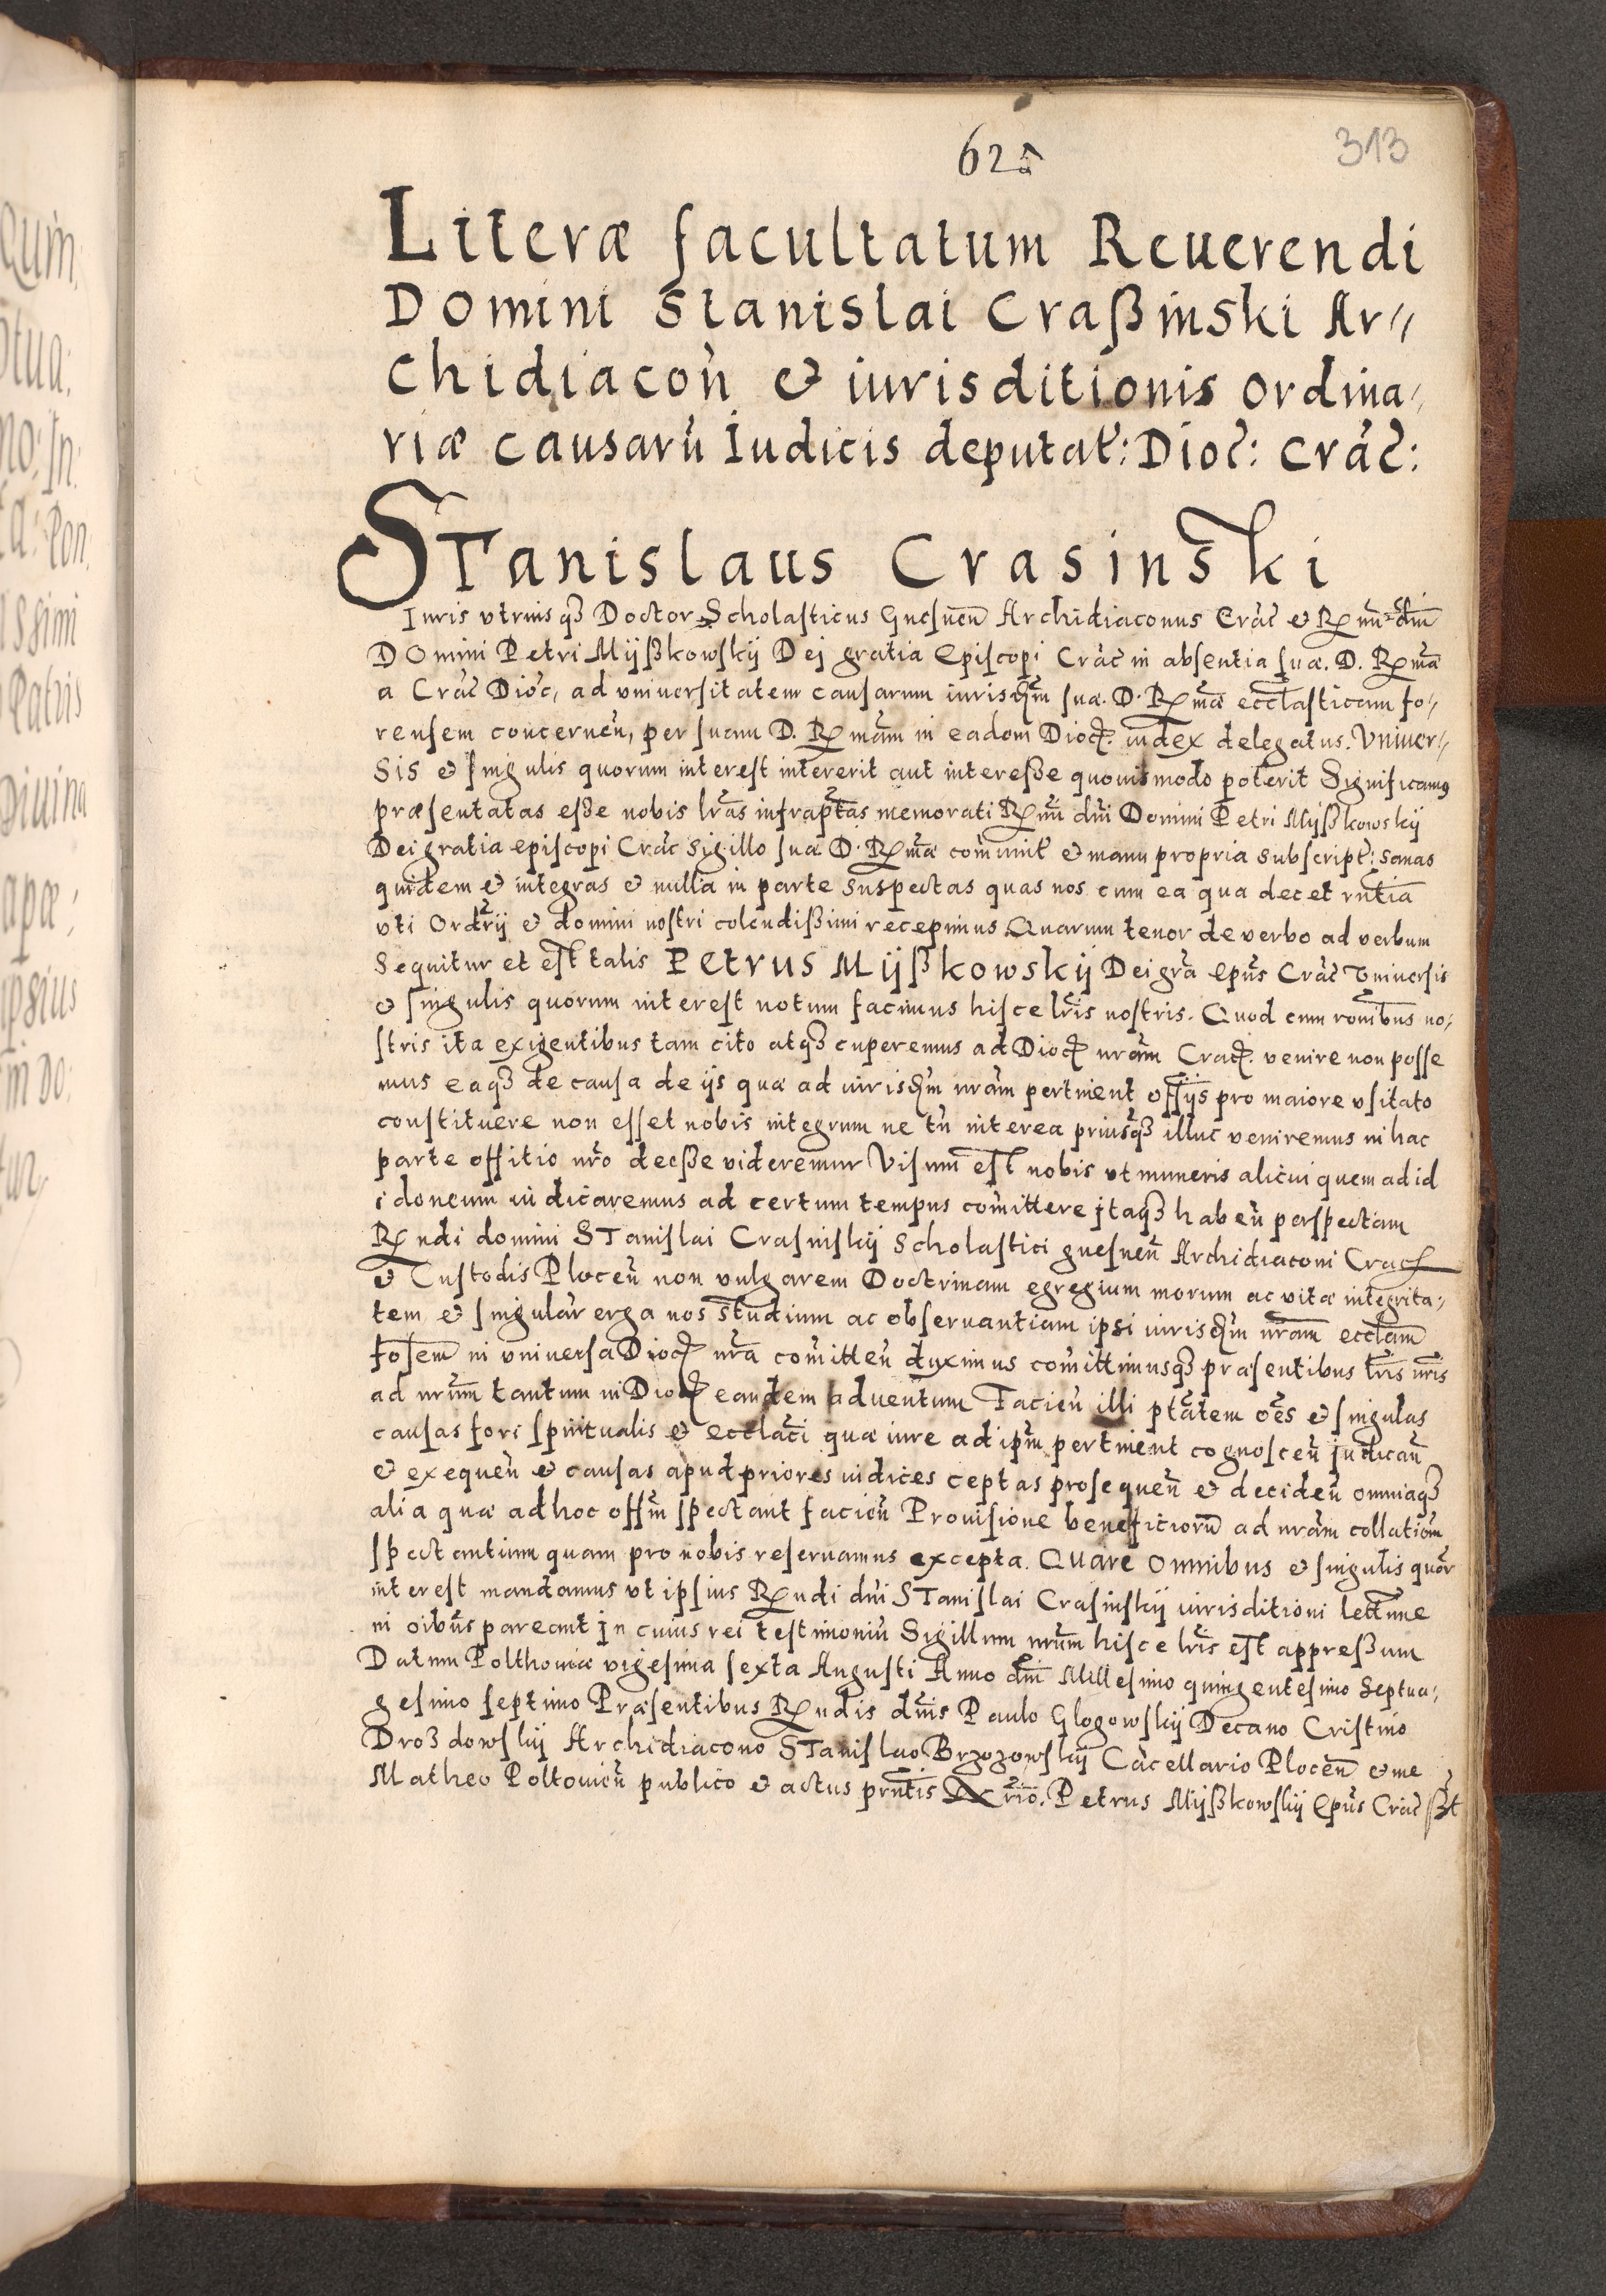 625
313
Literæ facultatum Reuerendi
Domini Stanislai Craßinski Ar⸗
chidiacoñ & iurisditionis Ordina⸗
riæ causarũ Iudicis deputat̃: Dioc̃: Crac̃:
STanislaus Crasinski
Iuris vtriusqȝ Doctor Scholasticus Gnesneñ Archidiaconus Crac̃ & R
Domini Petri Mijßkowskij Dej gratia Episcopi Crac̃ in absentia suæ. D. Rmæ
a Crac̃ Dioc̃, ad vniuersitatem causarum iurisdm̃ suæ. D. Rmæ eccl̃asticam fo⸗
rensem concerneñ, per suam D. Rmam in eadem Dioc. iudex delegatus. Vniuer⸗
sis & singulis quorum interest intererit aut intereße quouismodo poterit Significamus
præsentatas eße nobis lr̃as infrapt̃as memorati Rmi dñi Domini Petri Mijßkowskij
Dei gratia episcopi Crac̃ sigillo suæ D. Rmæ com̃unit̃ & manu propria subscript̃: sanas
quidem & integras & nulla in parte suspectas quas nos cum ea qua decet rñtia
vti Ordr̃ij & domini nostri colendißimi recepimus Quarum tenor de verbo ad verbum
Sequitur et est talis Petrus Mijßkowskij Dei gr̃a Ep̃us Crac̃ vniuersis
& singulis quorum interest notum facimus hisce lr̃is nostris. Quod cum ronĩbus no⸗
stris ita exigentibus tam cito atqȝ cuperemus ad Dioc nr̃am Crac. venire non posse
mus eaqȝ de causa de ijs quæ ad iurisdm̃ nr̃am pertinent offijs pro maiore vsitato
constituere non esset nobis integrum ne tñ interea priusqȝ illuc veniremus in hac
parte offitio nr̃o deeße videremur Visum est nobis vt muneris alicui quem ad id
idoneum iudicaremus ad certum tempus com̃ittere jtaqȝ habeñ perspectam
Rndi domini STanislai Crasinskij Scholastici gnesneñ Archidiaconi Crac
& Custodis Ploceñ non vulgarem Doctrinam egregium morum ac vitæ integrita⸗
tem & singular̃ erga nos studium ac obseruantiam ipsi iurisdm̃ nr̃am eccl̃am
fosem̃ in vniuersa Dioc nr̃a com̃itteñ duximus com̃ittimusqȝ præsentibus lr̃is nr̃is
ad nr̃um tantum in Dioc eandem aduentum Facieñ illi pt̃atem oẽs & singulas
causas fori spiritualis & eccl̃aci quæ iure ad ip̃m pertinent cognosceñ judicañ
& exequeñ & causas apud priores iudices ceptas prosequeñ & decideñ omniaqȝ
alia quæ ad hoc offm̃ spectant facieñ Prouisione beneficiorũ ad nr̃am collatiom̃
spectantium quam pro nobis reseruamus excepta. Quare omnibus & singulis quor̃
interest mandamus vt ipsius Rndi dñi STanislai Crasinskij iurisditioni lettime
in oĩbus pareant jn cuius rei testimoniũ Sigillum nr̃um hisce lr̃is est appreßum
Datum Polthouiæ vigesima sexta Augusti Anno dñi Millesimo quingentesimo Septua⸗
gesimo septimo Præsentibus Rndis dñis Paulo Glogowskij Decano Cristino
Droȝdowskij Archidiacono STanislao Brzozowskij Cãcellario Ploceñ & me
Matheo Poltouieñ publico & actus prñtis Petrus Mijßkowskij Ep̃us Crac̃ ßt